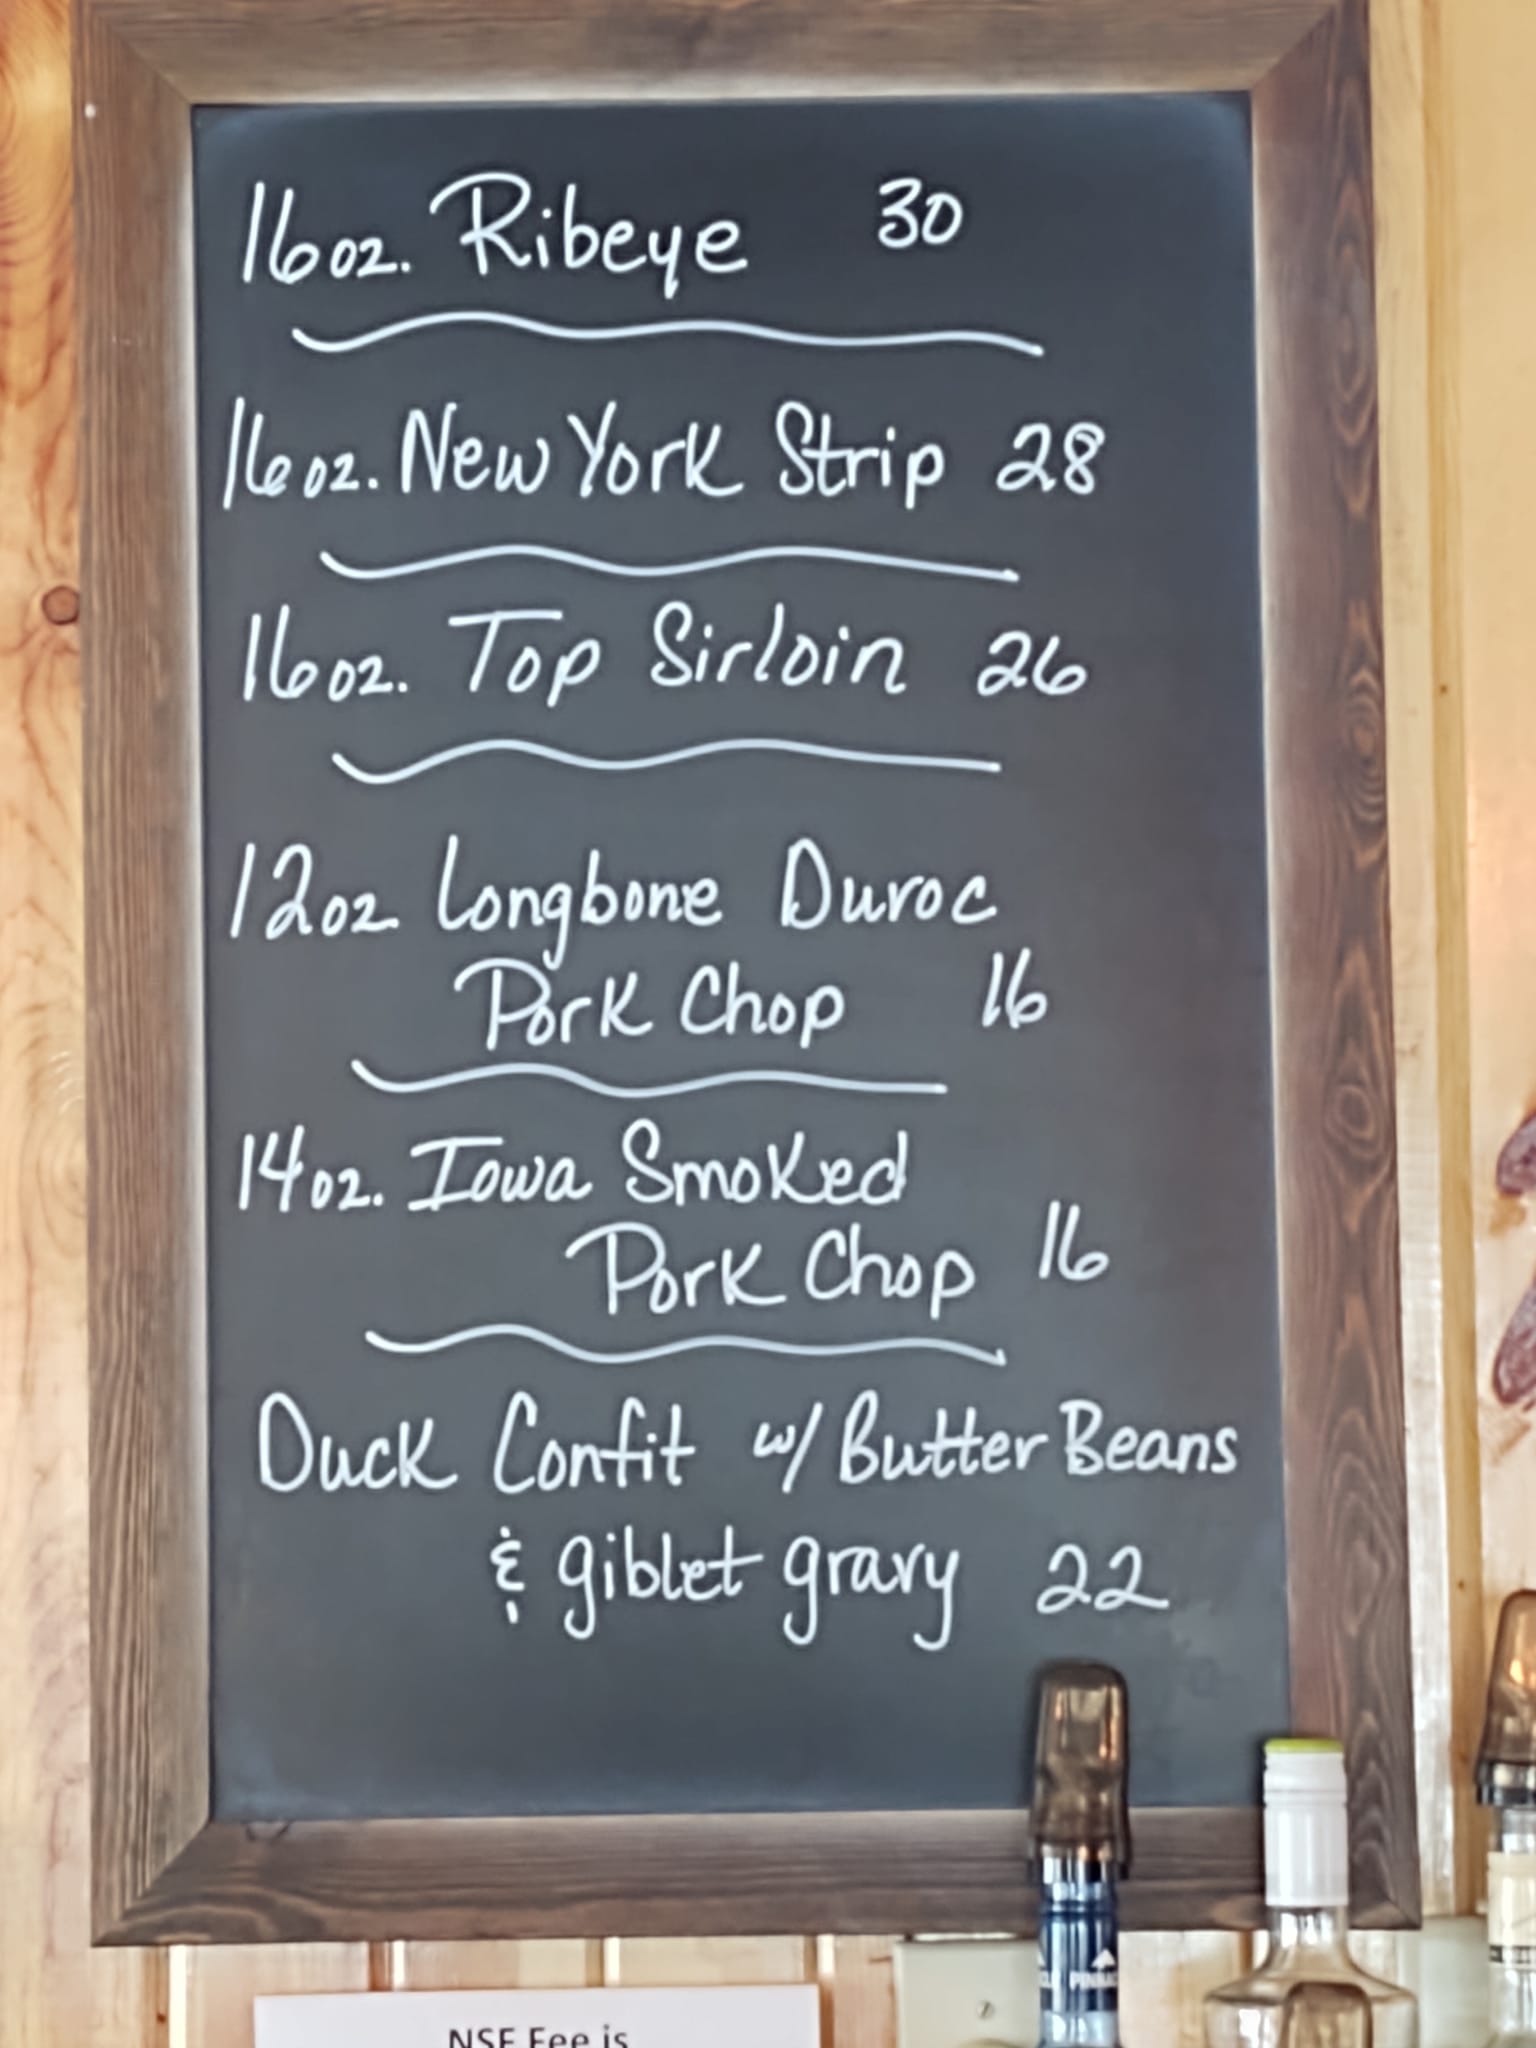 16oz. Ribeye 30
16oz. New York Strip 28
16oz. Top Sirloin 26
12oz Longbone Duroc
Pork Chop 16
14oz. Iowa Smoked
Pork Chop 16
Duck Confit w/ Butter Beans
& giblet gravy 22
NSF Fee is